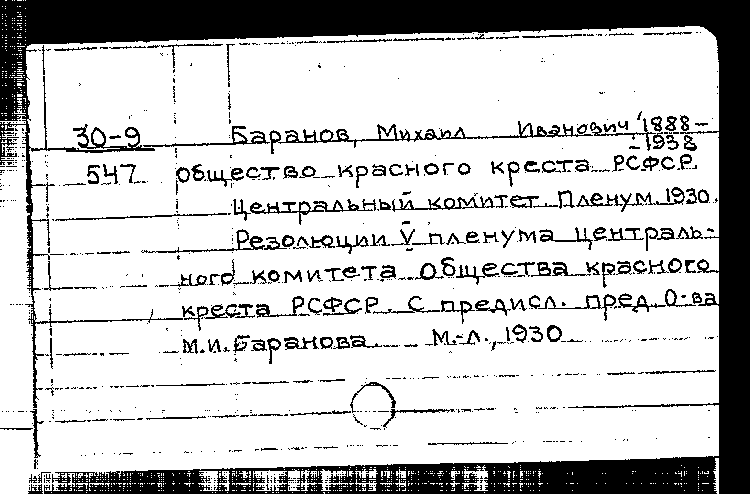 30-9 Баранов, Михаил Иванович, 1888-
-1938
547 общество красного креста РСФСР.
Центральный комитет. Пленум. 1930.
Резолюции V пленума централь-
ного комитета общества красного
креста РСФСР. С предисл. пред. О-ва
М.И. Баранова. М.-Л., 1930.